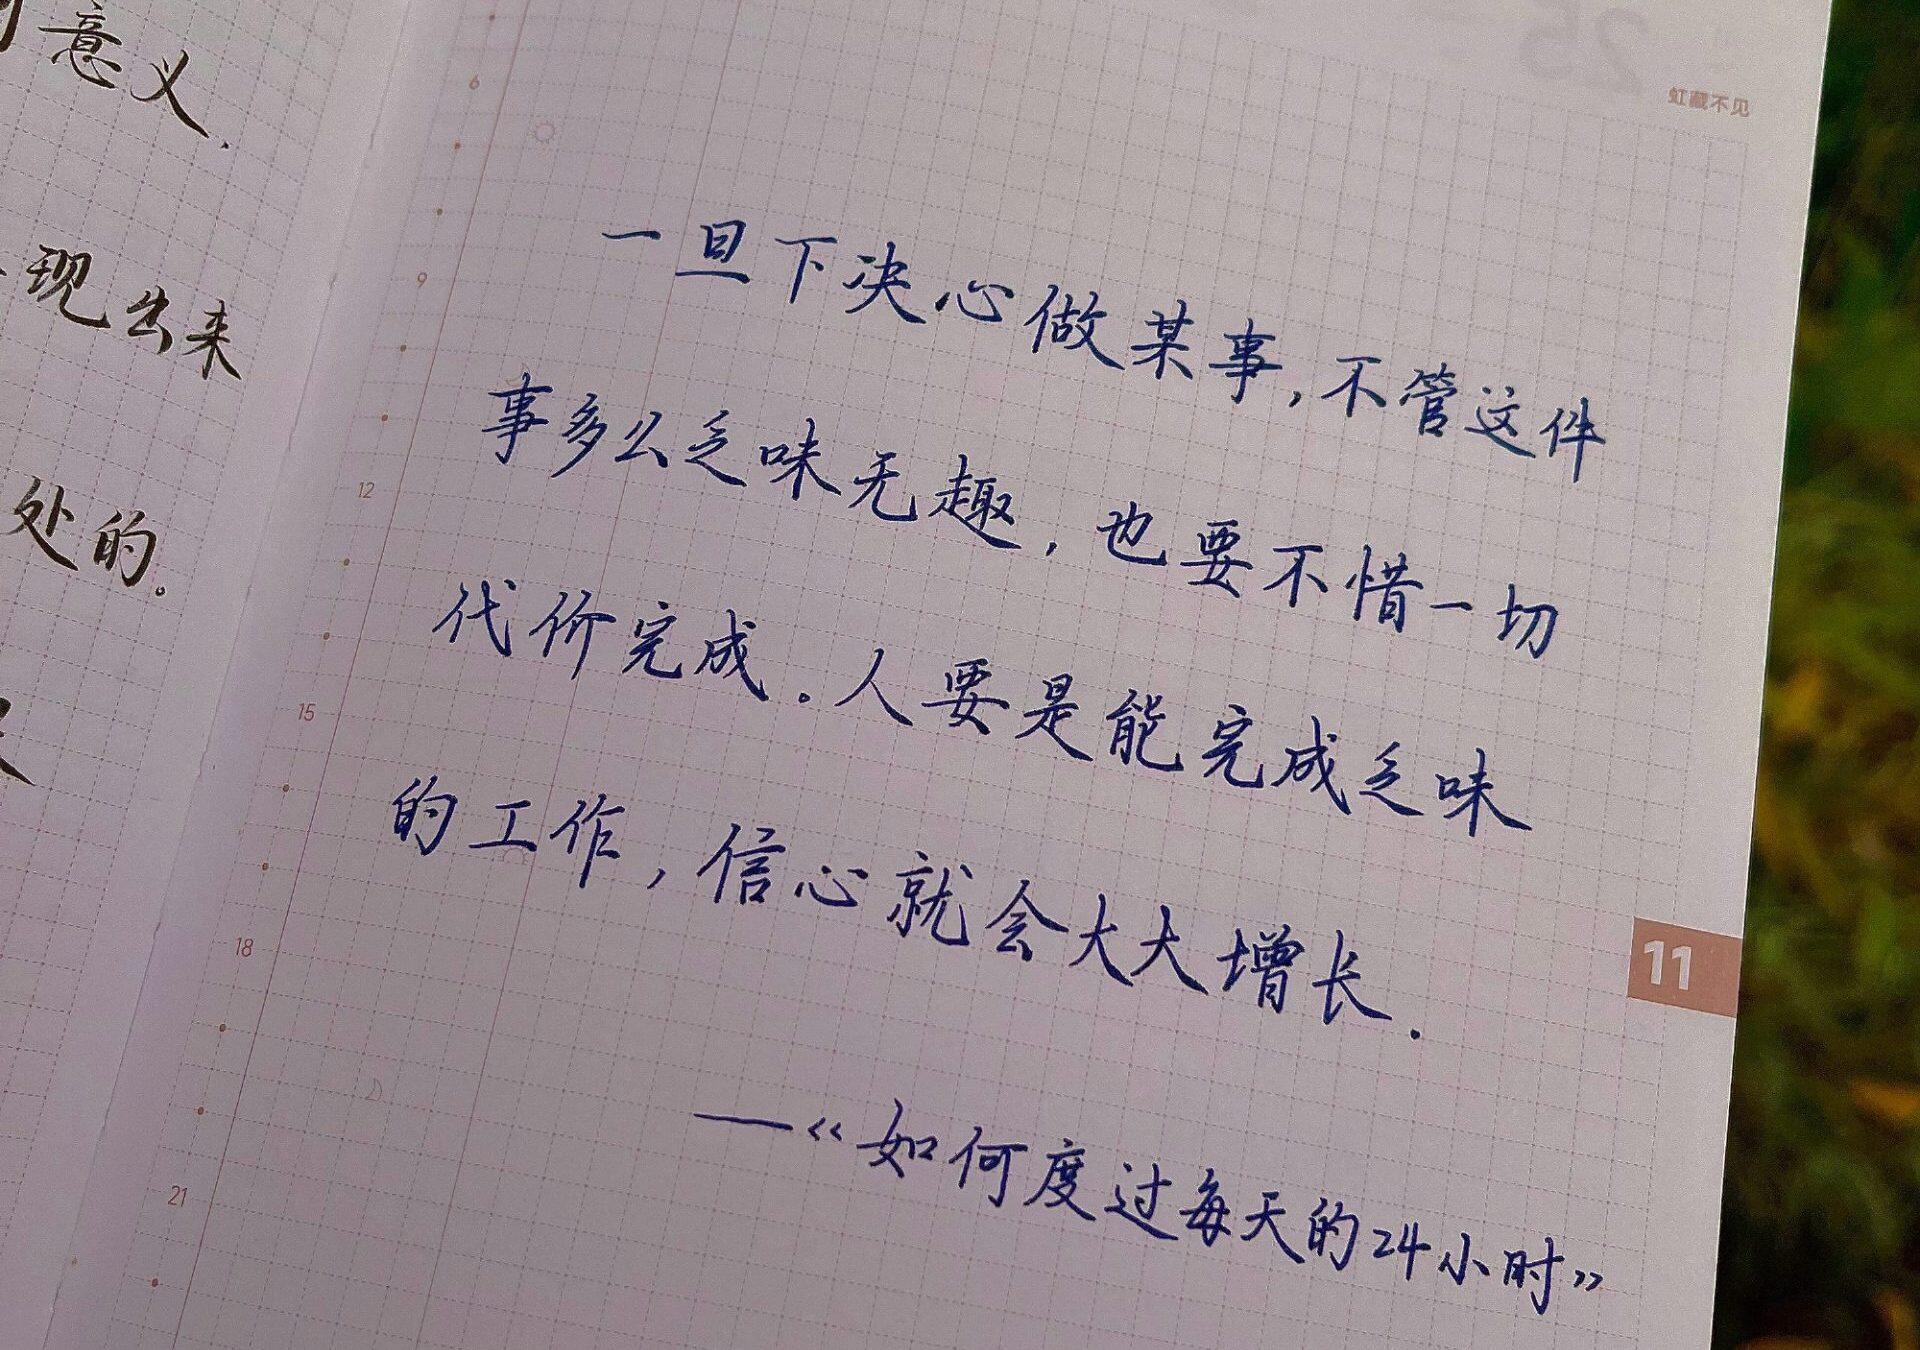 意义.
现出来
处的。
虹藏不见
一旦下决心做某事,不管这件
事多么乏味无趣,也要不惜一切
代价完成。人要是能完成乏味
的工作,信心就会大大增长.
——《如何度过每天的24小时》
6
9
12
15
18
21
11
25